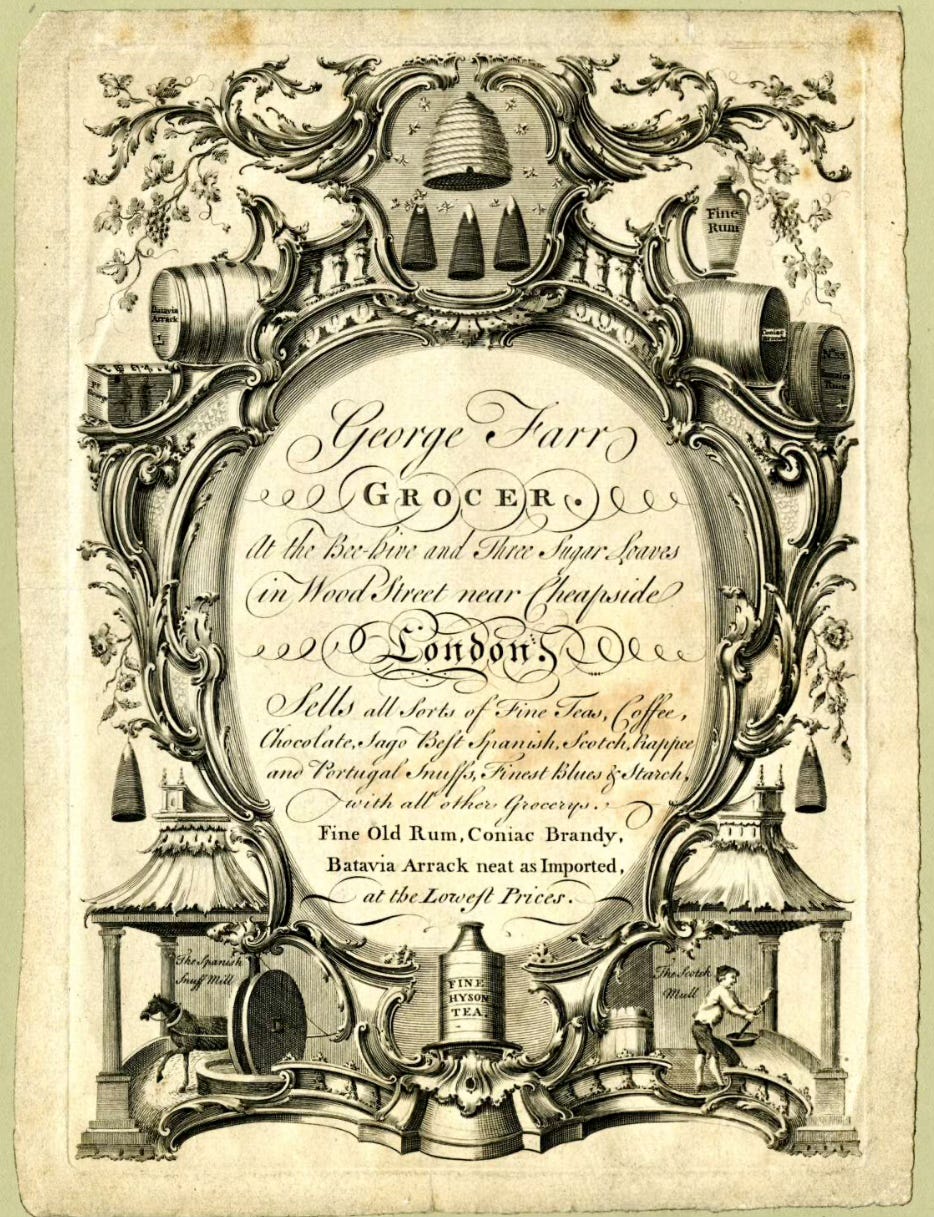 Fine
Rum
Batavia
Arrack
L
Coniac
Brandy
Nº 55
Jamaica
Rum
George Farr
GROCER.
At the Bee-hive and Three Sugar Loaves
in Wood Street near Cheapside
London.
Sells all Sorts of Fine Teas, Coffee,
Chocolate, Sago Beſt Spanish, Scotch, Rappee
and Portugal Snuffs, Finest Blues & Starch,
with all other Grocerys.
Fine Old Rum, Coniac Brandy,
Batavia Arrack neat as Imported,
at the Loweſt Prices.
The Spanish
Snuff Mill
FINE
HYSON
TEA.
The Scotch
Mull